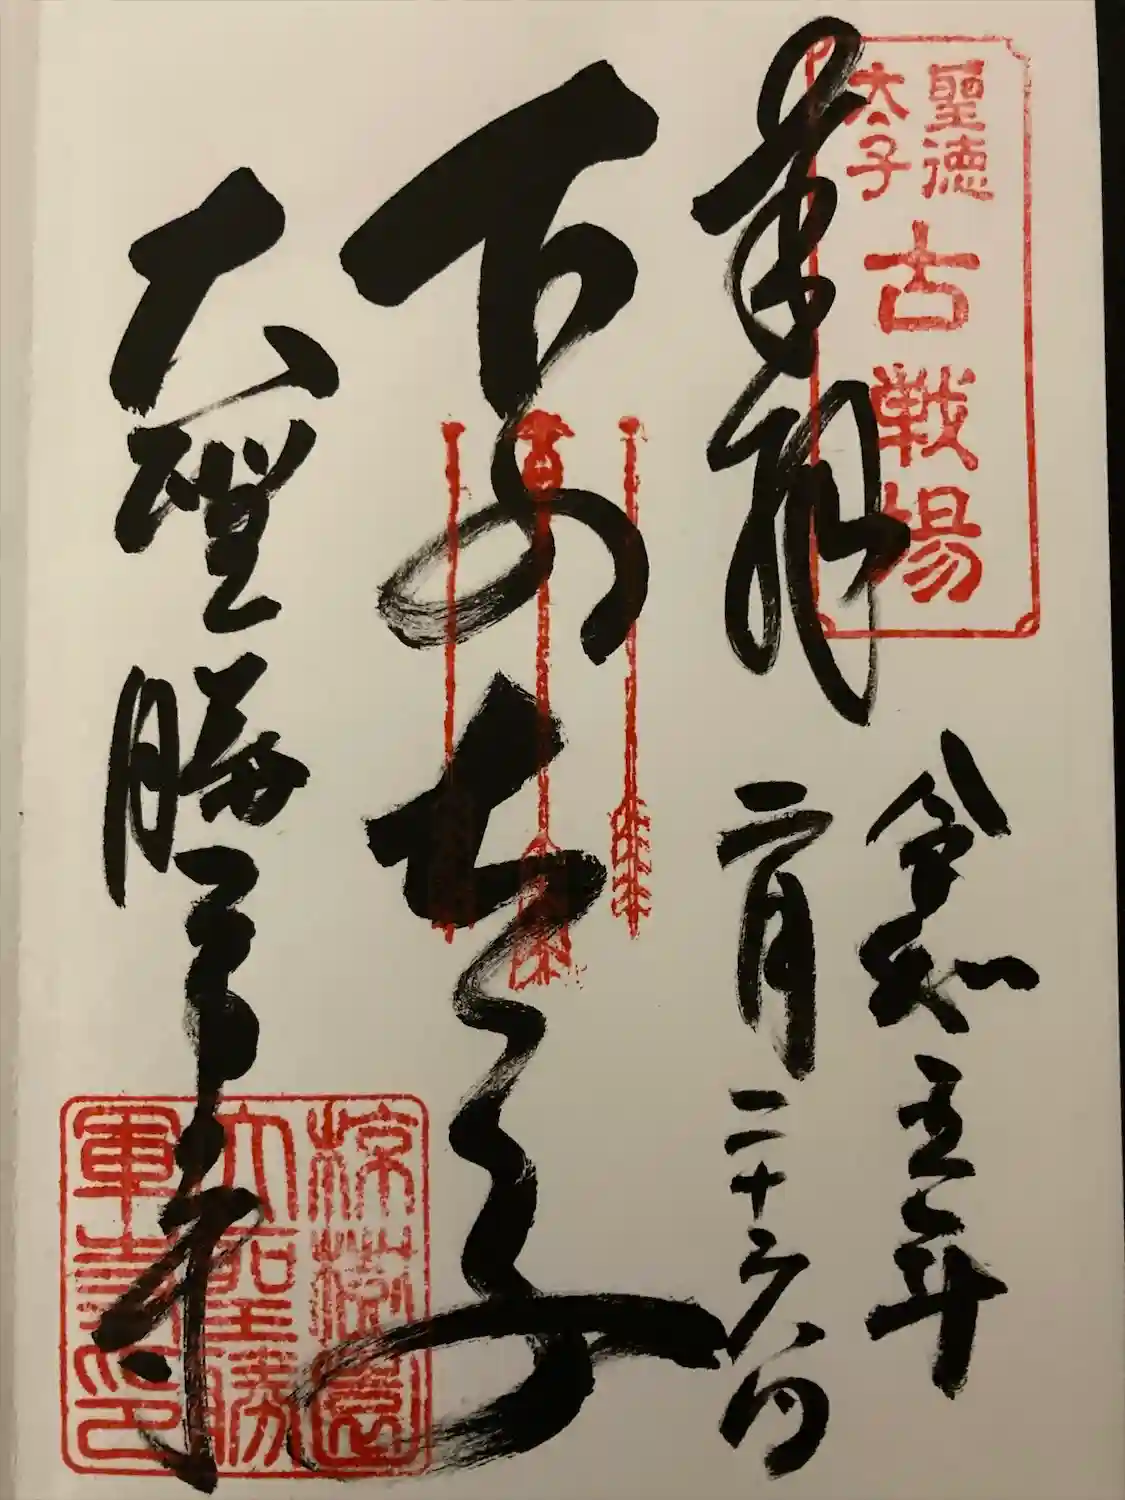 聖徳
太子
古戦場
奉拝
令和五年
二月二十六日
下の太子
大聖勝軍寺
椋樹山
大聖勝
軍寺印